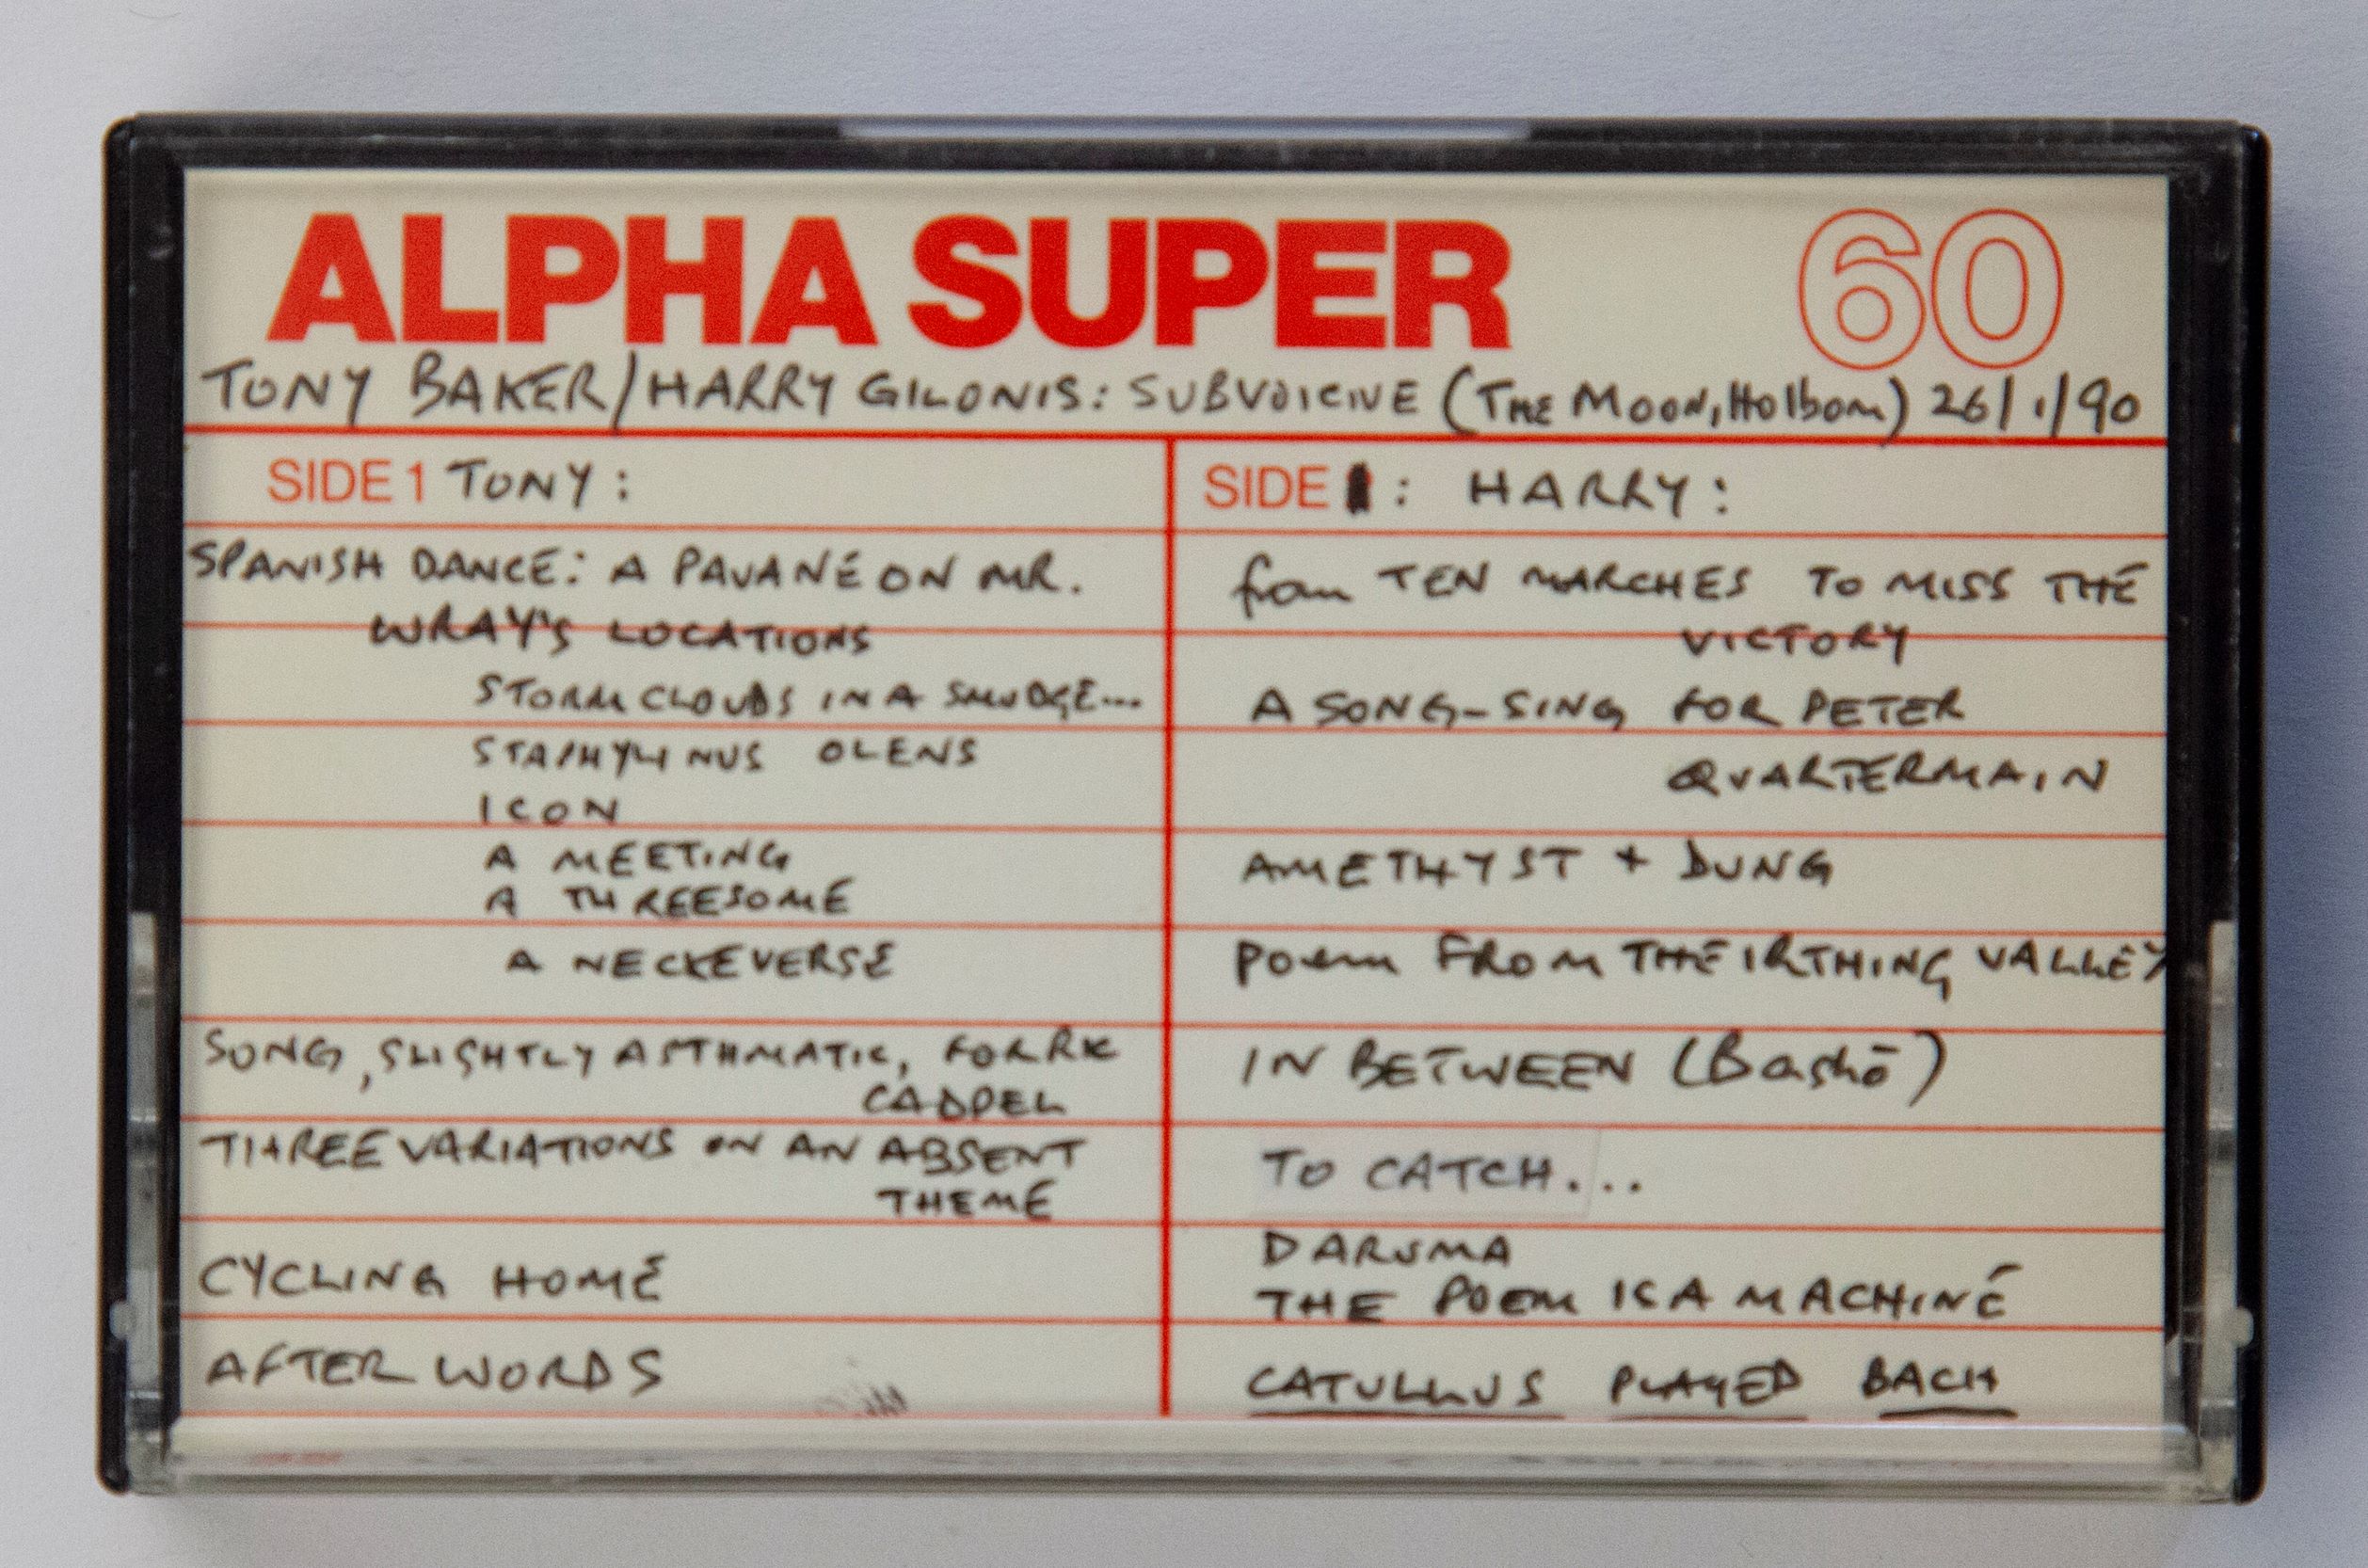 ALPHA SUPER 60
TONY BAKER/HARRY GILONIS: SUBVOICIVE (THE MOON, Holborn) 26/1/90
SIDE 1 TONY:
SPANISH DANCE: A PAVANE ON MR.
WRAY'S LOCATIONS
STORM CLOUDS IN A SMUDGE...
STAPHYLINUS OLENS
ICON
A MEETING
A THREESOME
A NECKEVERSE
SONG, SLIGHTLY ASTHMATIC, FOR RK
CADDEL
THREE VARIATIONS ON AN ABSENT
THEME
CYCLING HOME
AFTER WORDS
SIDE 1: HARRY:
from TEN MARCHES TO MISS THE
VICTORY
A SONG-SING FOR PETER
QUARTERMAIN
AMETHYST + DUNG
POEM FROM THE IRTHING VALLEY
IN BETWEEN (Bashō)
TO CATCH...
DARUMA
THE POEM IS A MACHINE
CATULLUS PLAYED BACH